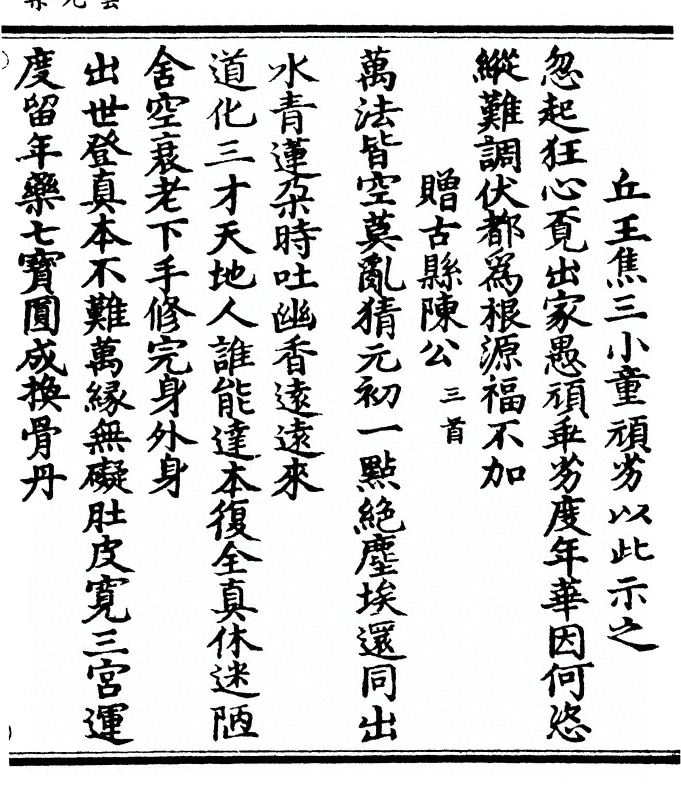 丘王焦三小童頑劣以此示之
忽起狂心覔出家愚頑乖劣度年華因何恣
縱難調伏都爲根源福不加
贈古縣陳公三首
萬法皆空莫亂猜元初一點絕塵埃還同出
水青蓮朵時吐幽香遠遠來
道化三才天地人誰能達本復全真休迷陋
舍空衰老下手修完身外身
出世登真本不難萬緣無礙肚皮寬三宮運
度留年藥七寶圓成換骨丹